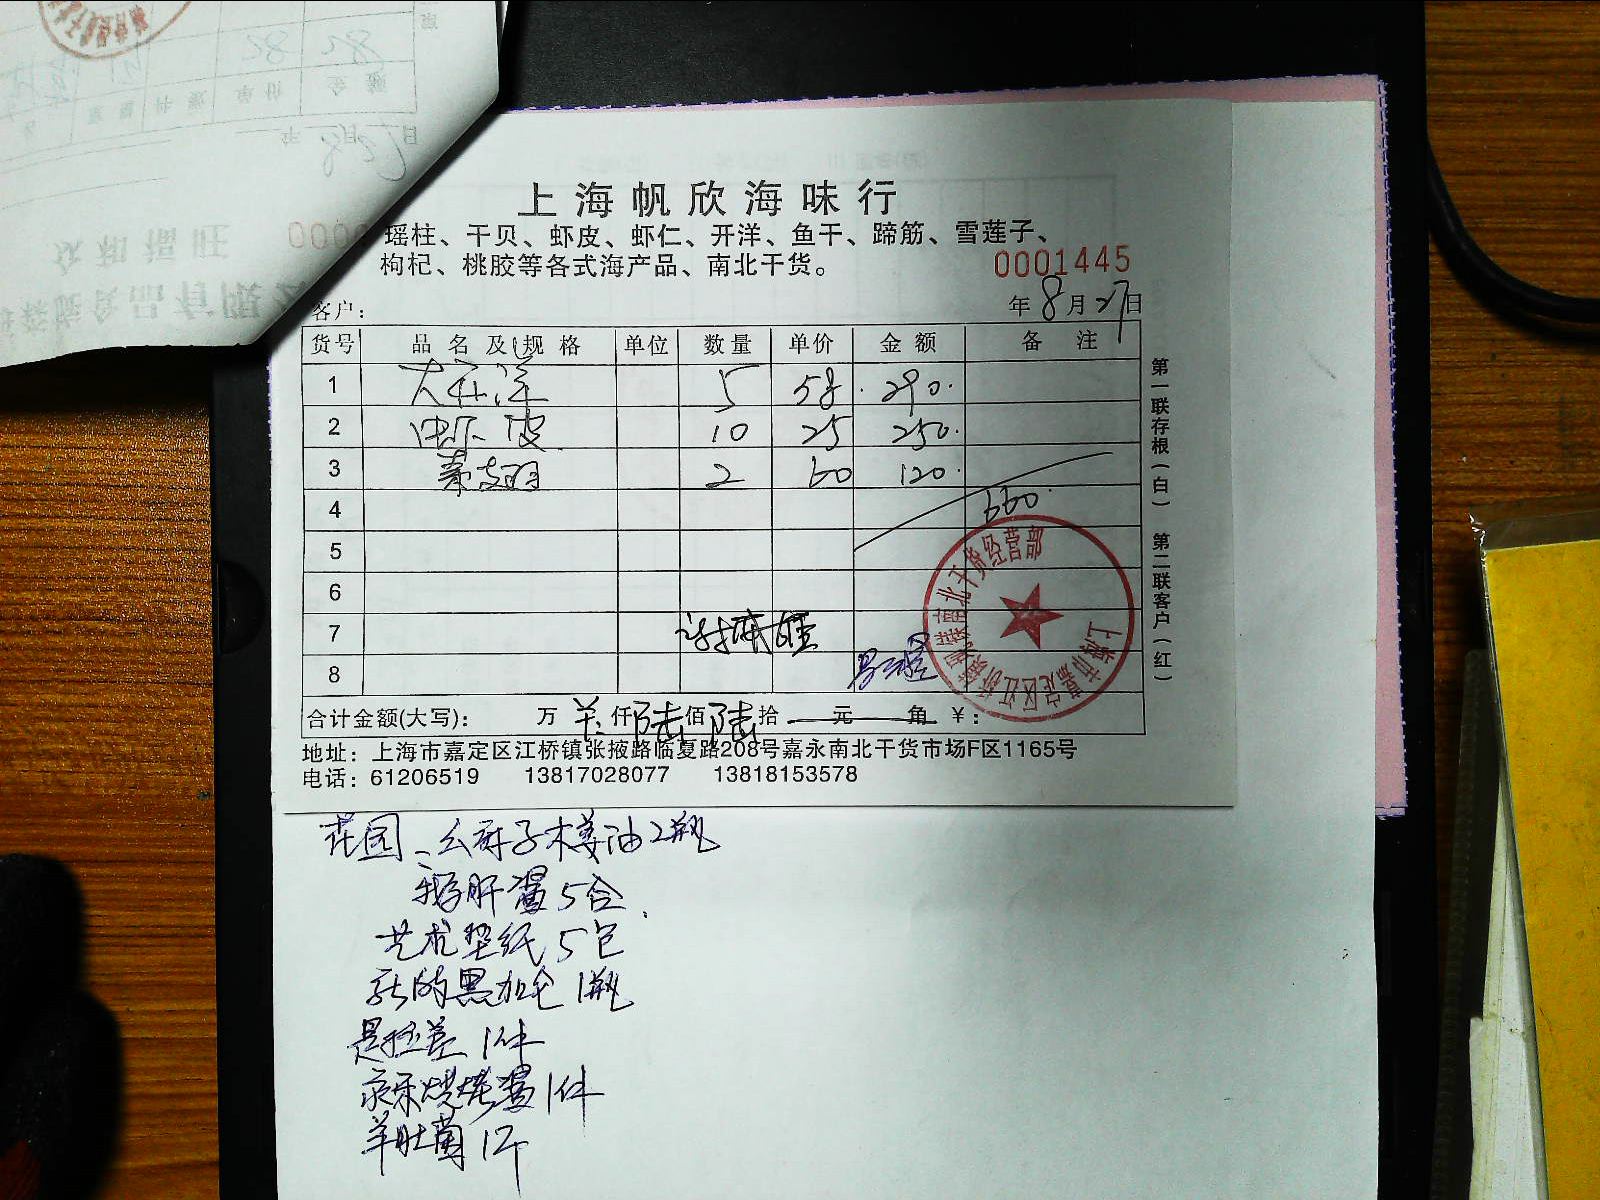 上海帆欣海味行
瑶柱、干贝、虾皮、虾仁、开洋、鱼干、蹄筋、雪莲子、
枸杞、桃胶等各式海产品、南北干货。
0001445
客户:
年8月27日
货号 品名及规格 单位 数量 单价 金额 备注
1 大开洋 5 58. 290.
2 皮 10 25 250.
3 2 60 120.
4 660.
5
6
7
8
合计金额(大写): 万 仟陆佰陆拾 元 角 ¥:
地址: 上海市嘉定区江桥镇张掖路临夏路208号嘉永南北干货市场F区1165号
电话: 61206519 13817028077 13818153578
第一联存根(白) 第二联客户(红)
花园、么麻子木姜油2瓶
鹅肝酱5合
艺术垫纸5包
的黑加仑1瓶
是拉差1件
烧烤酱1件
羊肚菌1斤